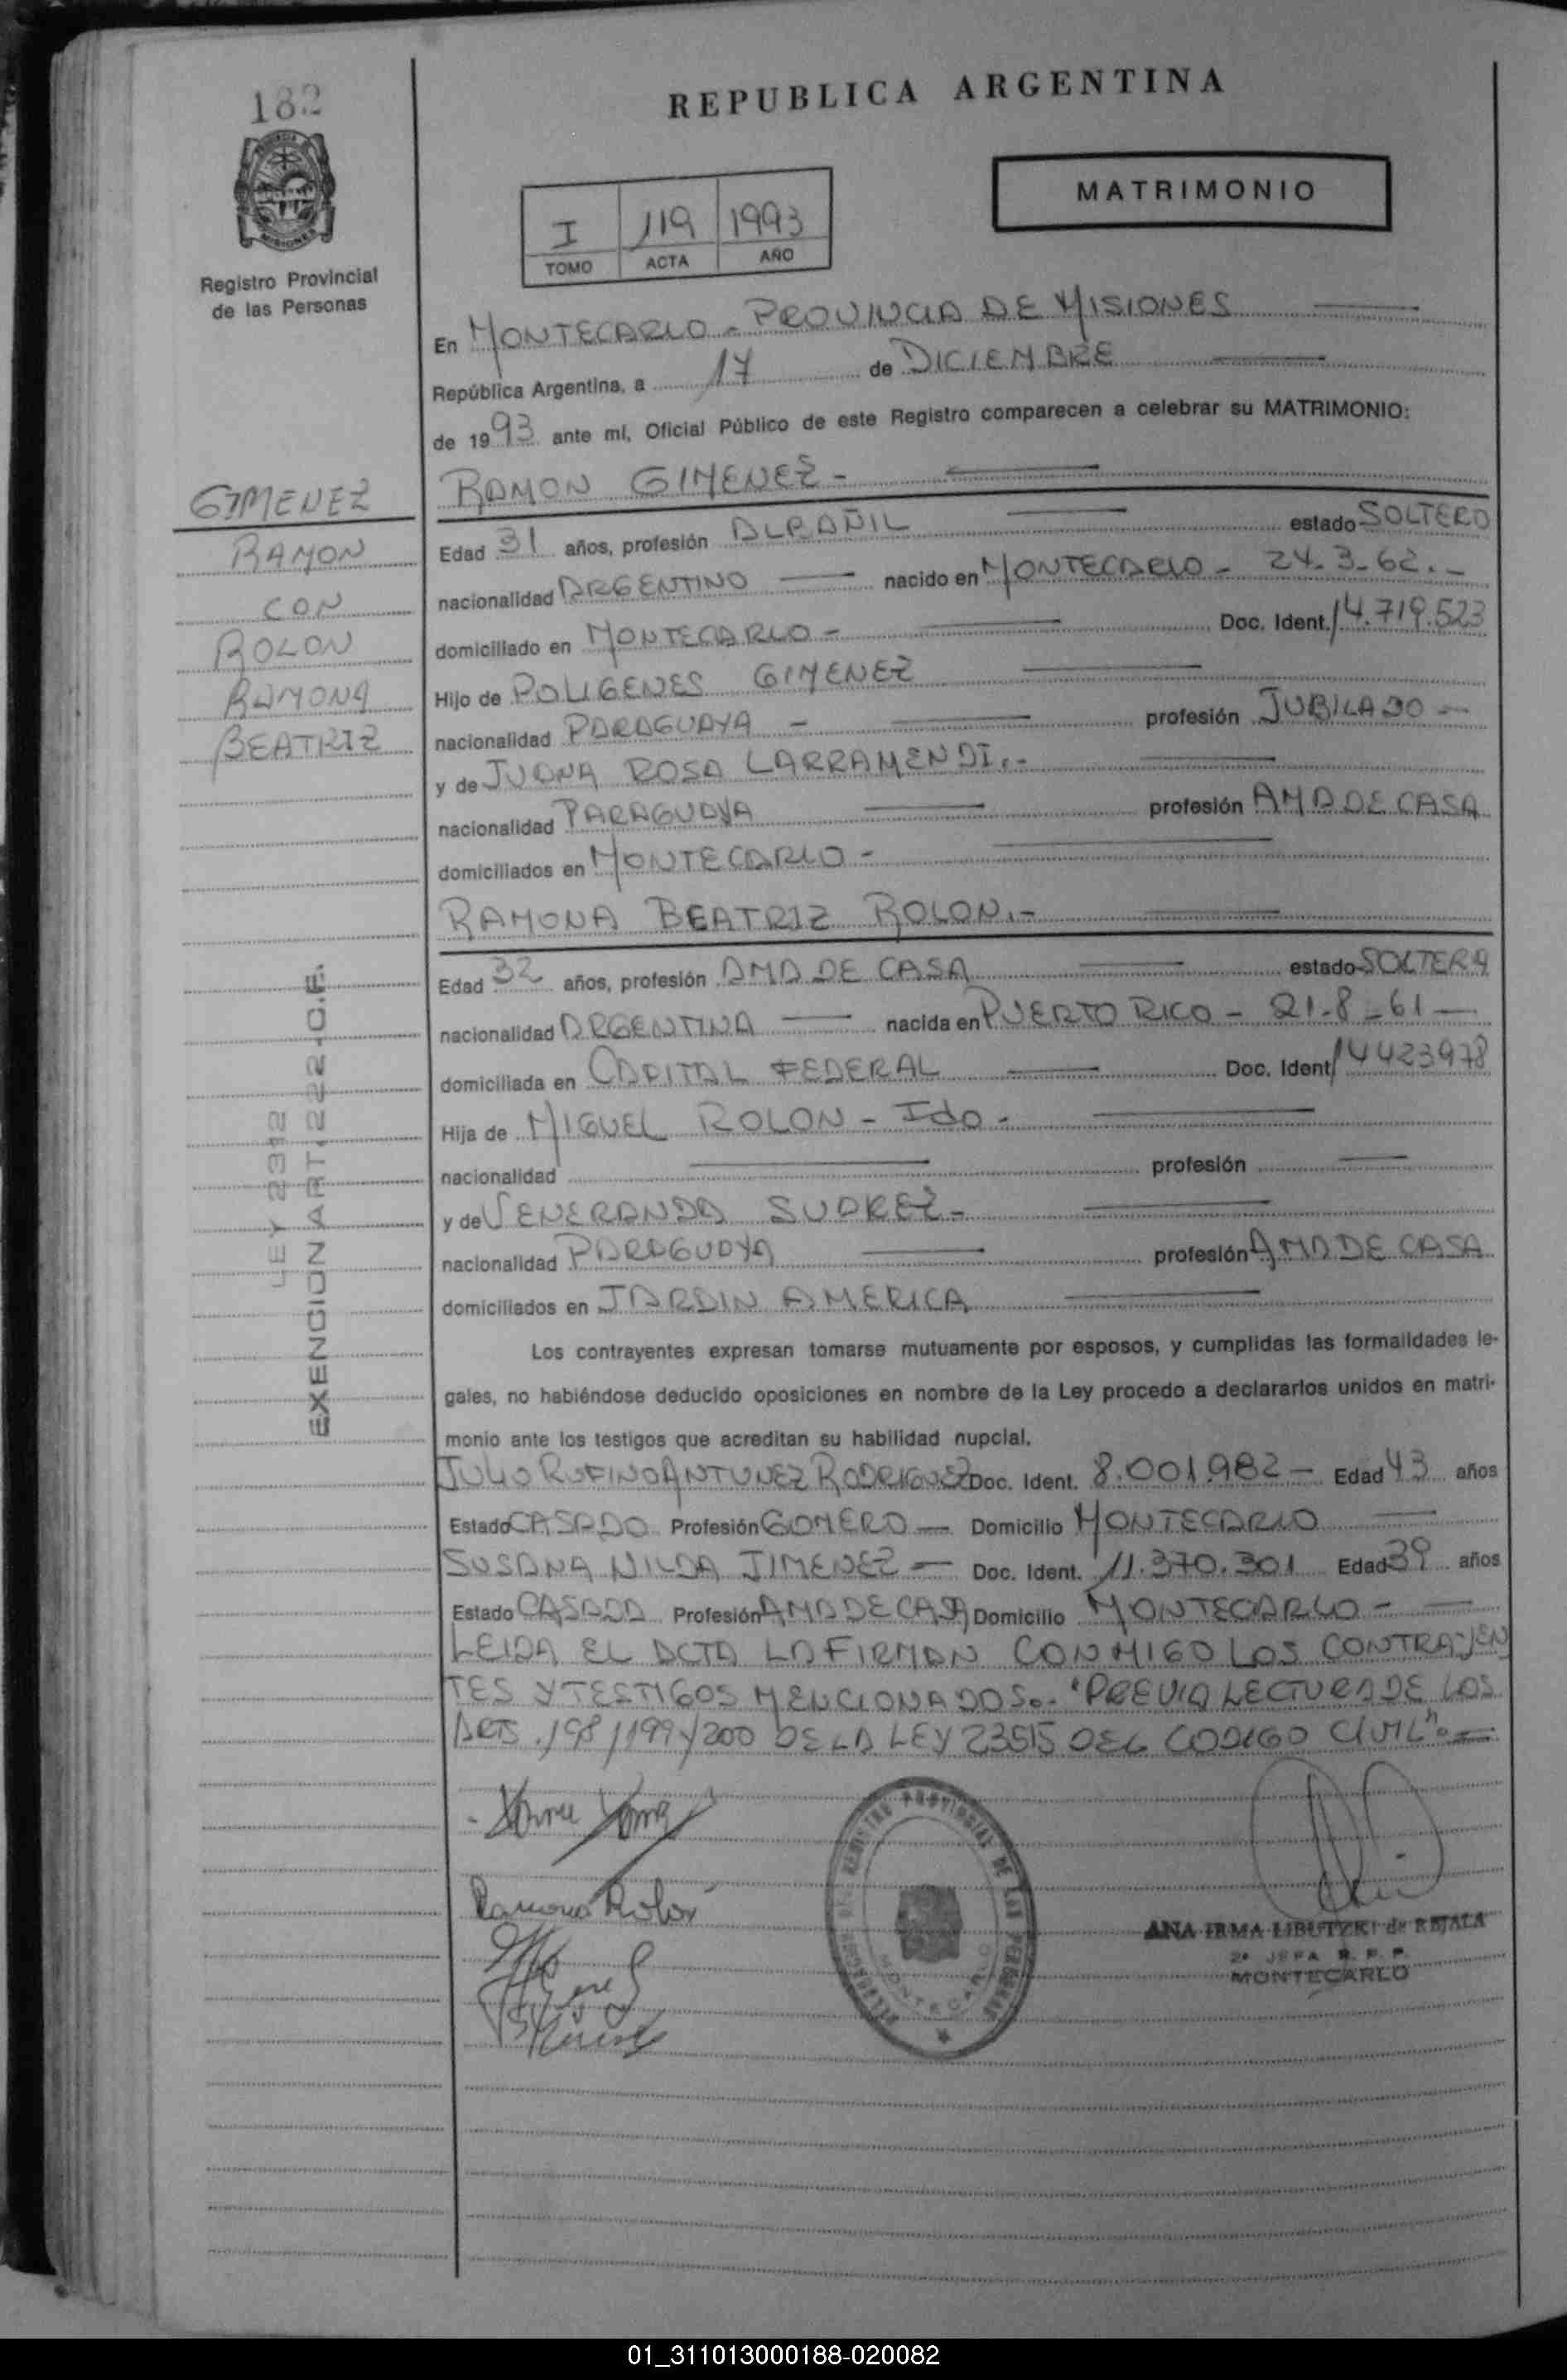 182
REPUBLICA ARGENTINA
MATRIMONIO
I 119 1993
TOMO ACTA AÑO
Registro Provincial
de las Personas
En MONTECARLO - PROVINCIA DE MISIONES
República Argentina, a 17 de DICIEMBRE
de 1993 ante mí, Oficial Público de este Registro comparecen a celebrar su MATRIMONIO:
GIMENEZ
RAMON
CON
ROLON
RAMONA
BEATRIZ
LEY 2312
EXENCION ART. 222 - C.F.
RAMON GIMENEZ -
Edad 31 años, profesión ALBAÑIL estado SOLTERO
nacionalidad ARGENTINO nacido en MONTECARLO - 24-3-62.-
domiciliado en MONTECARLO - Doc. Ident. 14.719.523
Hijo de POLIGENES GIMENEZ
nacionalidad PARAGUAYA - profesión JUBILADO -
y de JUANA ROSA LARRAMENDI.-
nacionalidad PARAGUAYA profesión AMA DE CASA
domiciliados en MONTECARLO -
RAMONA BEATRIZ ROLON.-
Edad 32 años, profesión AMA DE CASA estado SOLTERA
nacionalidad ARGENTINA nacida en PUERTO RICO - 21-8-61 -
domiciliada en CAPITAL FEDERAL Doc. Ident. 14423978
Hija de MIGUEL ROLON - Ido -
nacionalidad profesión
y de VENERANDA SUAREZ -
nacionalidad PARAGUAYA profesión AMA DE CASA
domiciliados en JARDIN AMERICA
Los contrayentes expresan tomarse mutuamente por esposos, y cumplidas las formalidades le-
gales, no habiéndose deducido oposiciones en nombre de la Ley procedo a declararlos unidos en matri-
monio ante los testigos que acreditan su habilidad nupcial.
JULIO RUFINO ANTUNEZ RODRIGUEZ Doc. Ident. 8.001.982 - Edad 43 años
Estado CASADO Profesión GOMERO - Domicilio MONTECARLO
SUSANA NILDA JIMENEZ - Doc. Ident. 11.370.301 Edad 39 años
Estado CASADA Profesión AMA DE CASA Domicilio MONTECARLO -
LEIDA EL ACTA LA FIRMAN CONMIGO LOS CONTRAYEN
TES Y TESTIGOS MENCIONADOS.- "PREVIA LECTURA DE LOS
ARTS. 198/199 y 200 DE LA LEY 23515 DEL CODIGO CIVIL".=
Ramona Rolon
REGISTRO PROVINCIAL DE LAS PERSONAS
MONTECARLO
ANA IRMA LIBUTZKI de REJALA
2ª JEFA R. P. P.
MONTECARLO
01_311013000188-020082